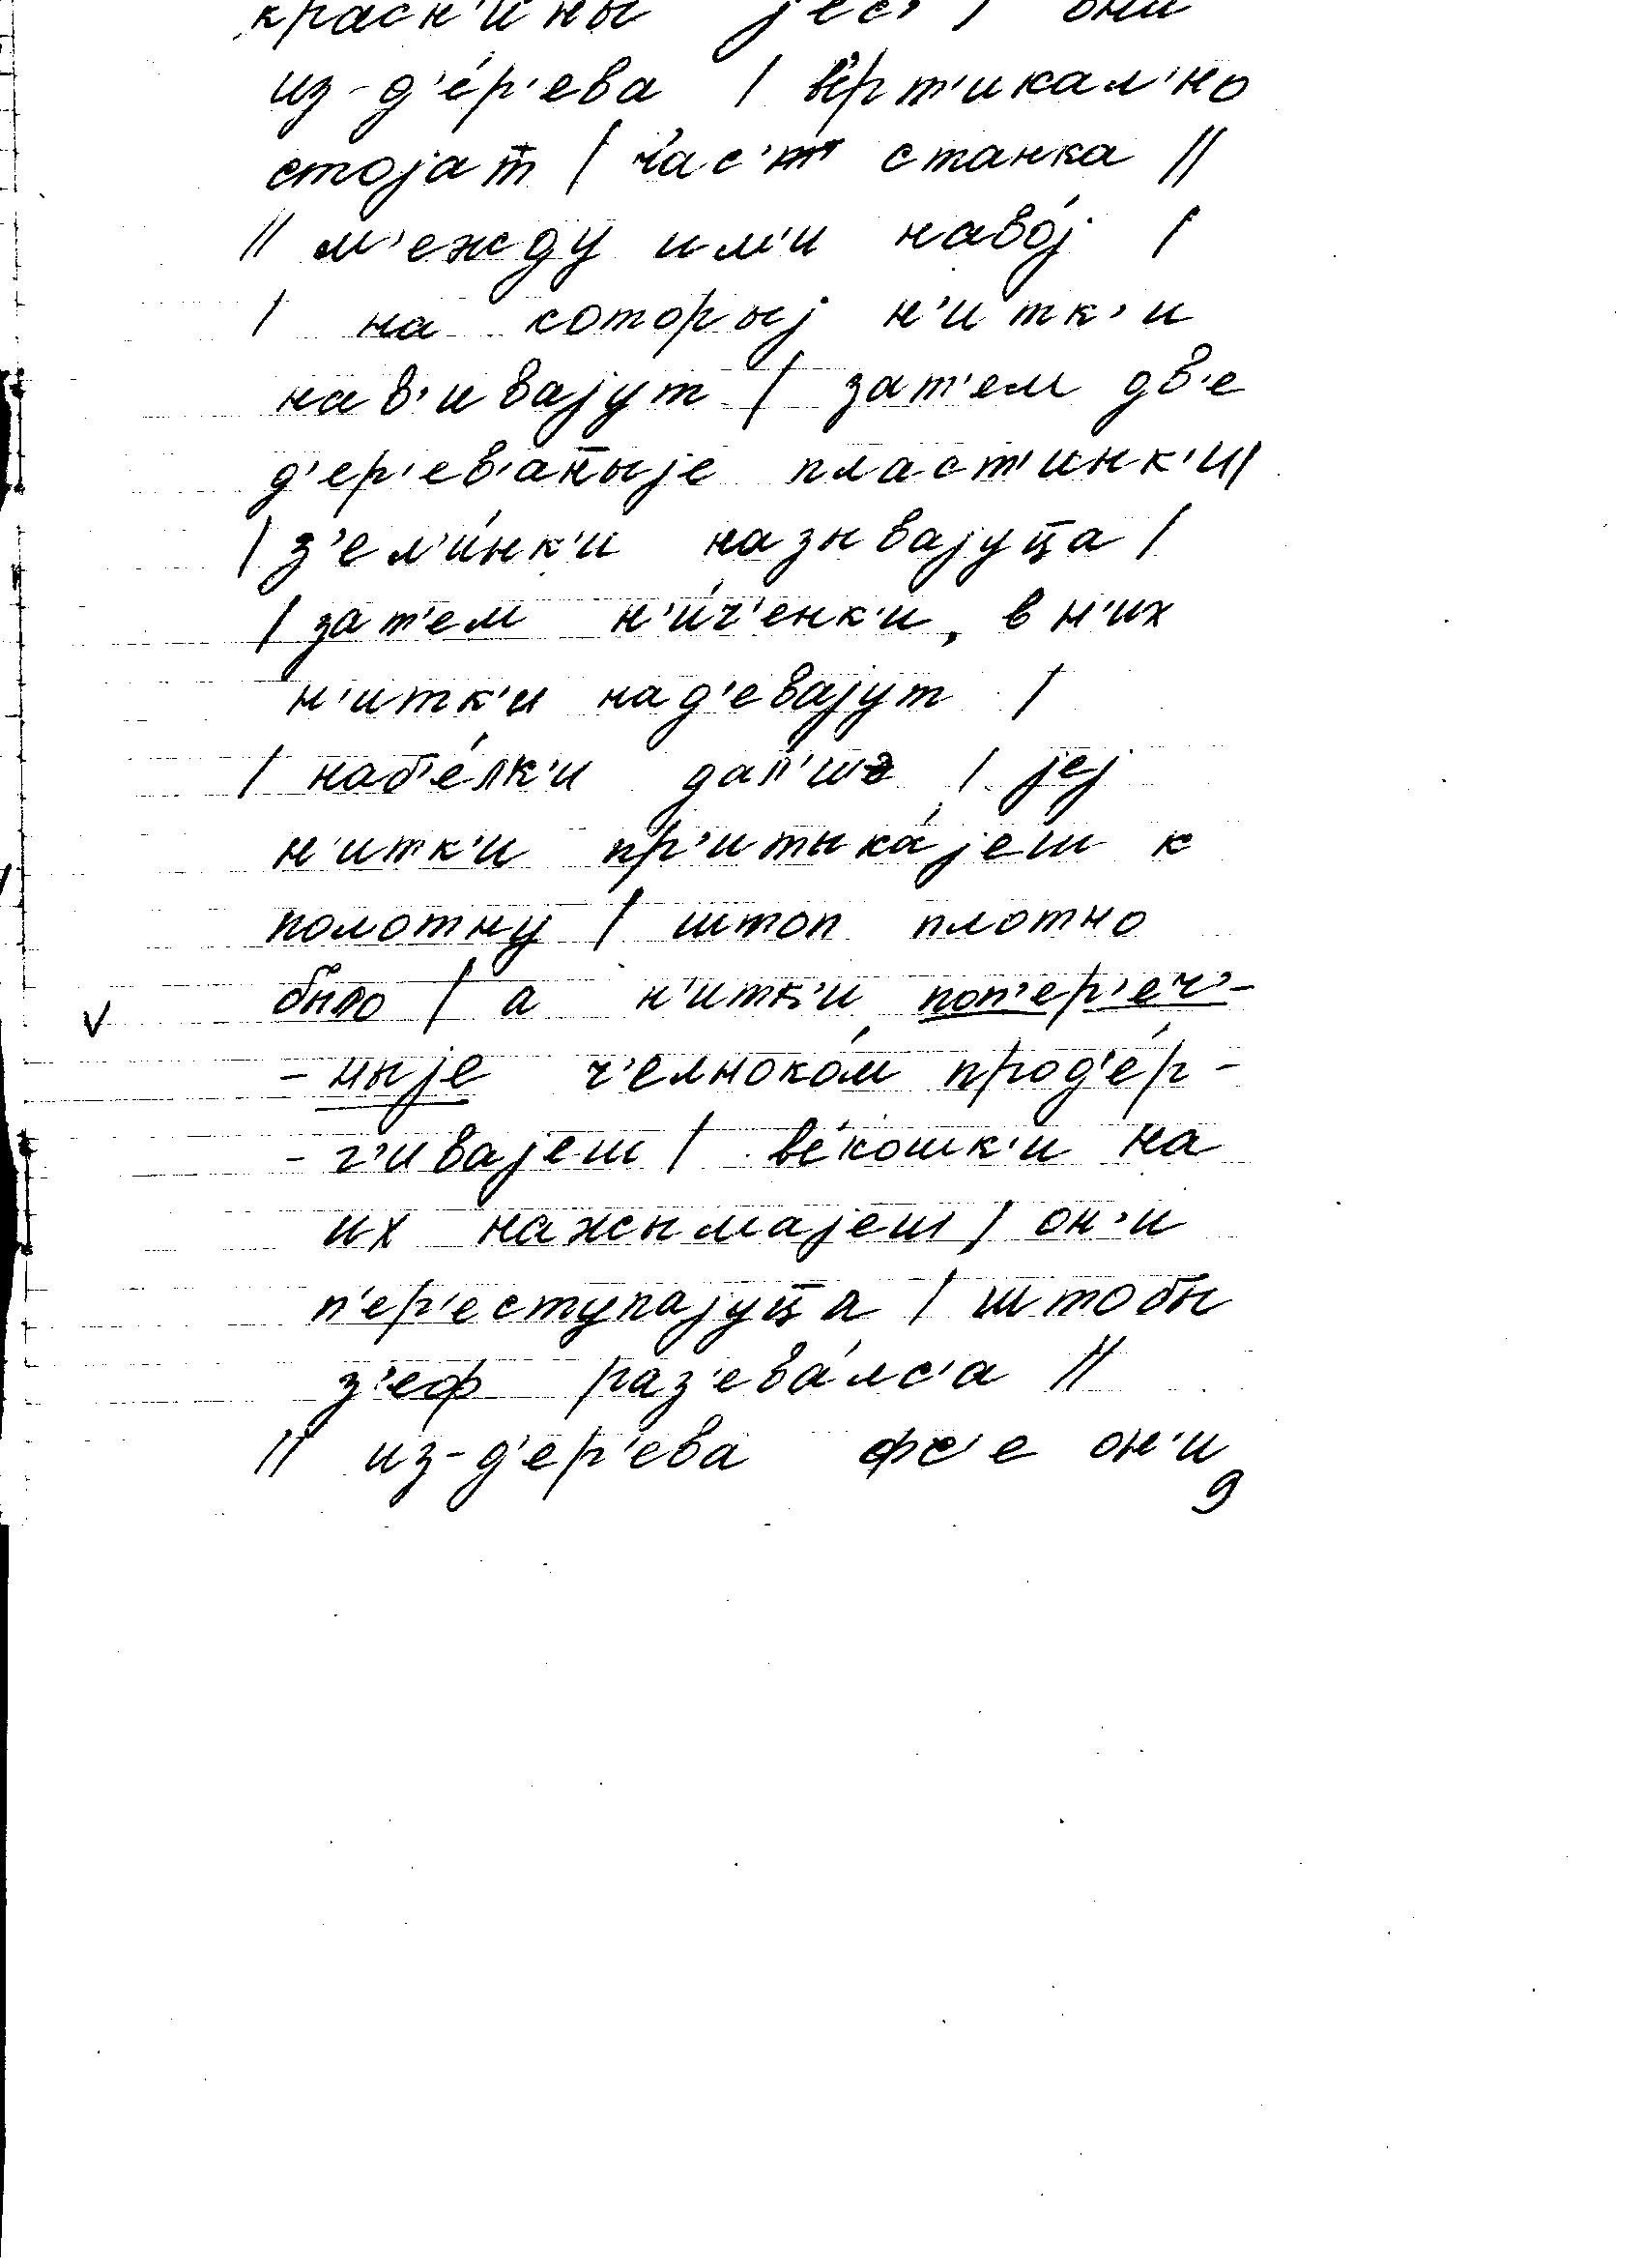 красн'ины јес' | они
из-д'е́р'ева | в'ертикал'но
стојат̄ | ч'ас'т' станка ||
|| м'ежду им'и наво́ј |
| на которыј н'итк'и
нав'ивајут | зат'ем дв'е
д'ер'ев'ан̄ыје пласт'инк'и |
| з'ел'и́нк'и называјуц̄а |
| зат'ем н'и́ч'енк'и, в н'их
н'итк'и над'евајут |
| наб'е́лк'и дал'шэ | јеј
н'итк'и пр'итыка́јеш к
полотну | штоп плотно
было | а н'итк'и поп'ер'еч'-
-ныје ч'елноко́м прод'е́р-
-г'ивајеш | ве́кошк'и на
их нажымајеш | он'и
п'ер'еступајуц̄а | штобы
з'еф раз'ева́лс'а ||
|| из-д'ер'ева фс'е он'и
9